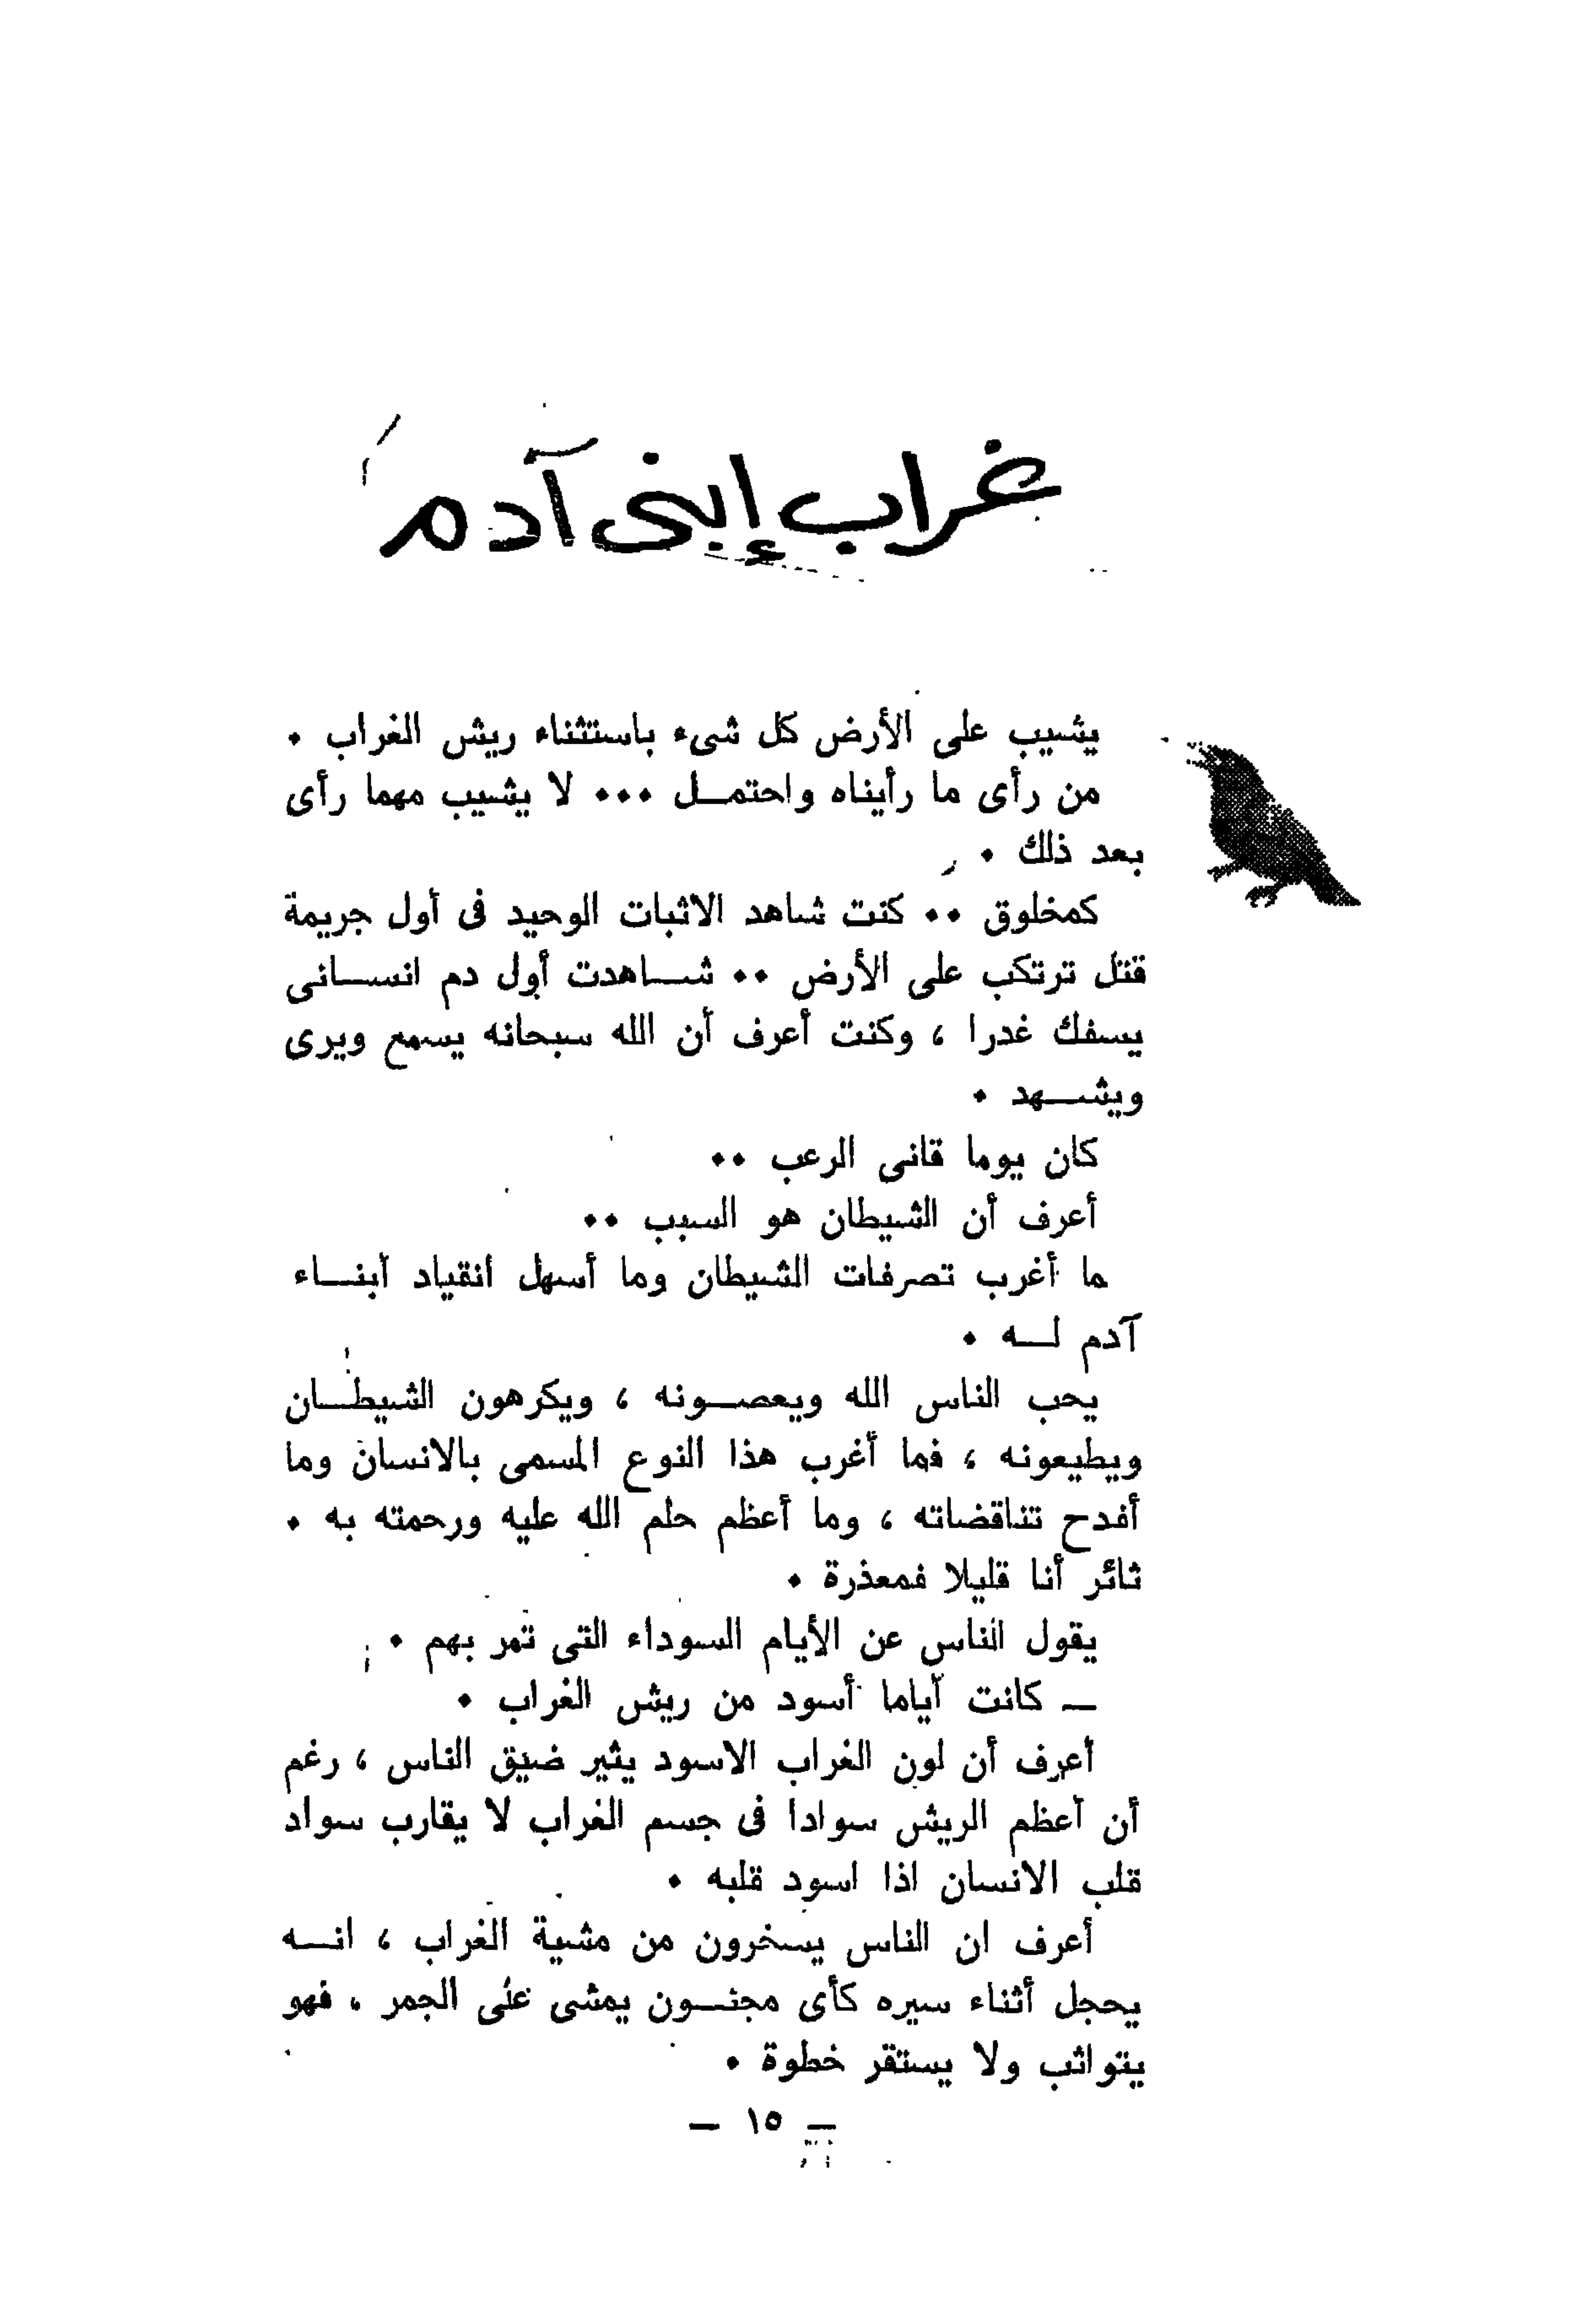 غراب إبنى آدم
يشيب على الأرض كل شىء باستثناء ريش الغراب .
من رأى ما رأيناه واحتمــل ... لا يشيب مهما رأى
بعد ذلك .
كمخلوق .. كنت شاهد الاثبات الوحيد فى أول جريمة
قتل ترتكب على الأرض .. شــاهدت أول دم انســانى
يسفك غدرا ، وكنت أعرف أن الله سبحانه يسمع ويرى
ويشــهد .
كان يوما قانى الرعب ..
أعرف أن الشيطان هو السبب ..
ما أغرب تصرفات الشيطان وما أسهل انقياد أبنــاء
آدم لــه .
يحب الناس الله ويعصــونه ، ويكرهون الشيطــان
ويطيعونه ، فما أغرب هذا النوع المسمى بالانسان وما
أفدح تناقضاته ، وما أعظم حلم الله عليه ورحمته به .
ثائر أنا قليلا فمعذرة .
يقول الناس عن الأيام السوداء التى تمر بهم .
— كانت أياما أسود من ريش الغراب .
أعرف أن لون الغراب الاسود يثير ضيق الناس ، رغم
أن أعظم الريش سوادا فى جسم الغراب لا يقارب سواد
قلب الانسان اذا اسود قلبه .
أعرف ان الناس يسخرون من مشية الغراب ، انــه
يحجل أثناء سيره كأى مجنــون يمشى على الجمر ، فهو
يتواثب ولا يستقر خطوة .
— ١٥ —